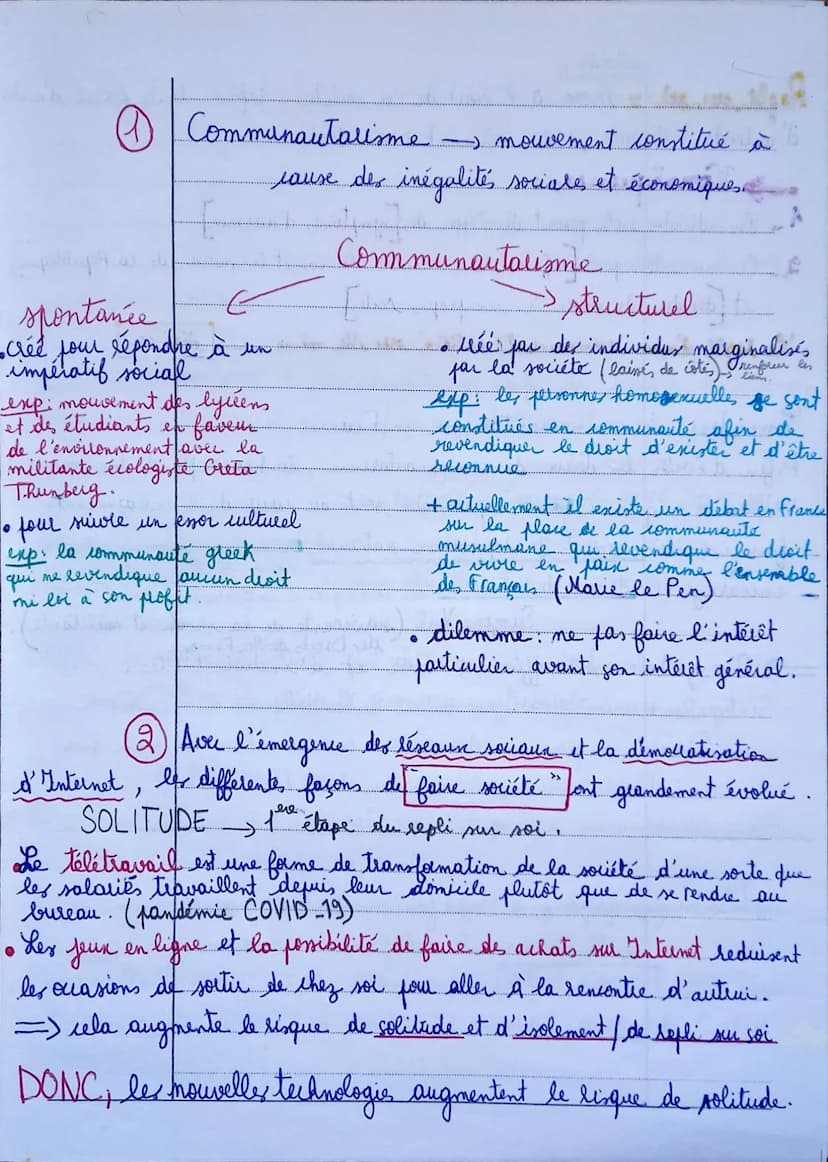 ① Communautarisme → mouvement constitué à
cause des inégalités sociales et économiques.
Communautarisme
spontanée
• créé pour répondre à un
impératif social
exp: mouvement des lycéens
et des étudiants en faveur
de l'environnement avec la
militante écologiste Greta
Thunberg.
• pour suivre un essor culturel
exp: la communauté greek
qui ne revendique aucun droit
ni loi à son profit.
structurel
• créé par des individus marginalisés
par la société (laissés de côtés) → renforcer les
liens.
exp: les personnes homosexuelles se sont
constitués en communauté afin de
revendiquer le droit d'exister et d'être
reconnue
+ actuellement il existe un débat en France
sur la place de la communauté
musulmane qui revendique le droit
de vivre en paix comme l'ensemble
des Français (Marie le Pen)
• dilemme: ne pas faire l'intérêt
particulier avant son intérêt général.
② Avec l'émergence des réseaux sociaux et la démocratisation
d'Internet, les différentes façons de "faire société" ont grandement évolué.
SOLITUDE → 1ère étape du repli sur soi.
• Le télétravail est une forme de transformation de la société d'une sorte que
les salariés travaillent depuis leur domicile plutôt que de se rendre au
bureau. (pandémie COVID-19)
• Les jeux en ligne et la possibilité de faire des achats sur Internet reduisent
les occasions de sortir de chez soi pour aller à la rencontre d'autrui.
=> cela augmente le risque de solitude et d'isolement / de repli sur soi
DONC, les nouvelles technologies augmentent le risque de solitude.